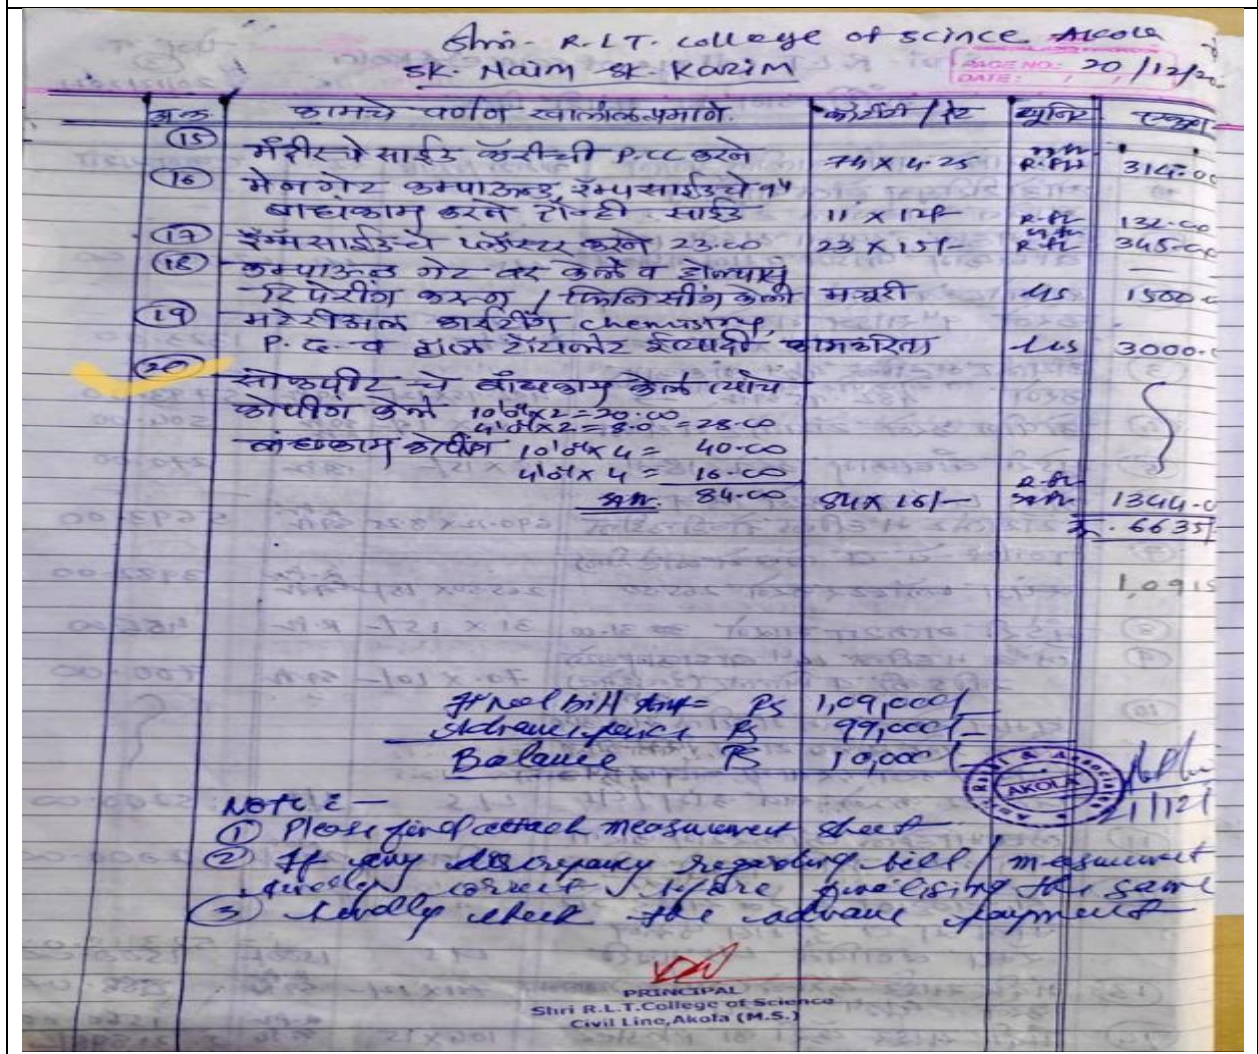 Shri- R.L.T. college of scince Akola
SK. Naim SK. Karim
PAGE NO.: 20/12/20
DATE: / /
अ.क्र. कामचे वर्णन खालील प्रमाणे. / रेट युनिट रक्कम
15 साईड P.CC करने 74 x 4.25 R.Ft 314.00
16 मेनगेट कम्पाऊन्ड रॅम्प साईडचे 9"
बाधंकाम करने साईड 11 x 12/- R.ft 132.00
17 रॅम्प साईडचे प्लॅस्टर करने 23.00 23 x 15/- R.ft 345.00
18 कम्पाऊन्ड गेट वर केले व
रिपेरींग करून / फिनिसींग केली मजूरी LS 1500
19 मटेरीअल chemistry,
P.G. व टॉयलेट ईत्यादी कामकरिता 3000.
20 चे बांधकाम केले त्याचे
कोपींग केले 10'0"x2=20.00
4'0"x2=8.0 =28.00
बांधकाम कोपींग 10'0"x4= 40.00
4'0"x4= 16.00
84.00 84 x 16/- R.ft 1344.0
6635/
1,0915
bill Amt= Rs 1,09,000/-
Rs 99,000/-
Balance Rs 10,000/-
& Associates
AKOLA
Note :-
1 Please find attach measurement sheet
2 If any discrepancy regarding bill / measurment
correct before finalising the same
3 kindly check the advance payment
PRINCIPAL
Shri R.L.T.College of Science
Civil Line,Akola (M.S.)